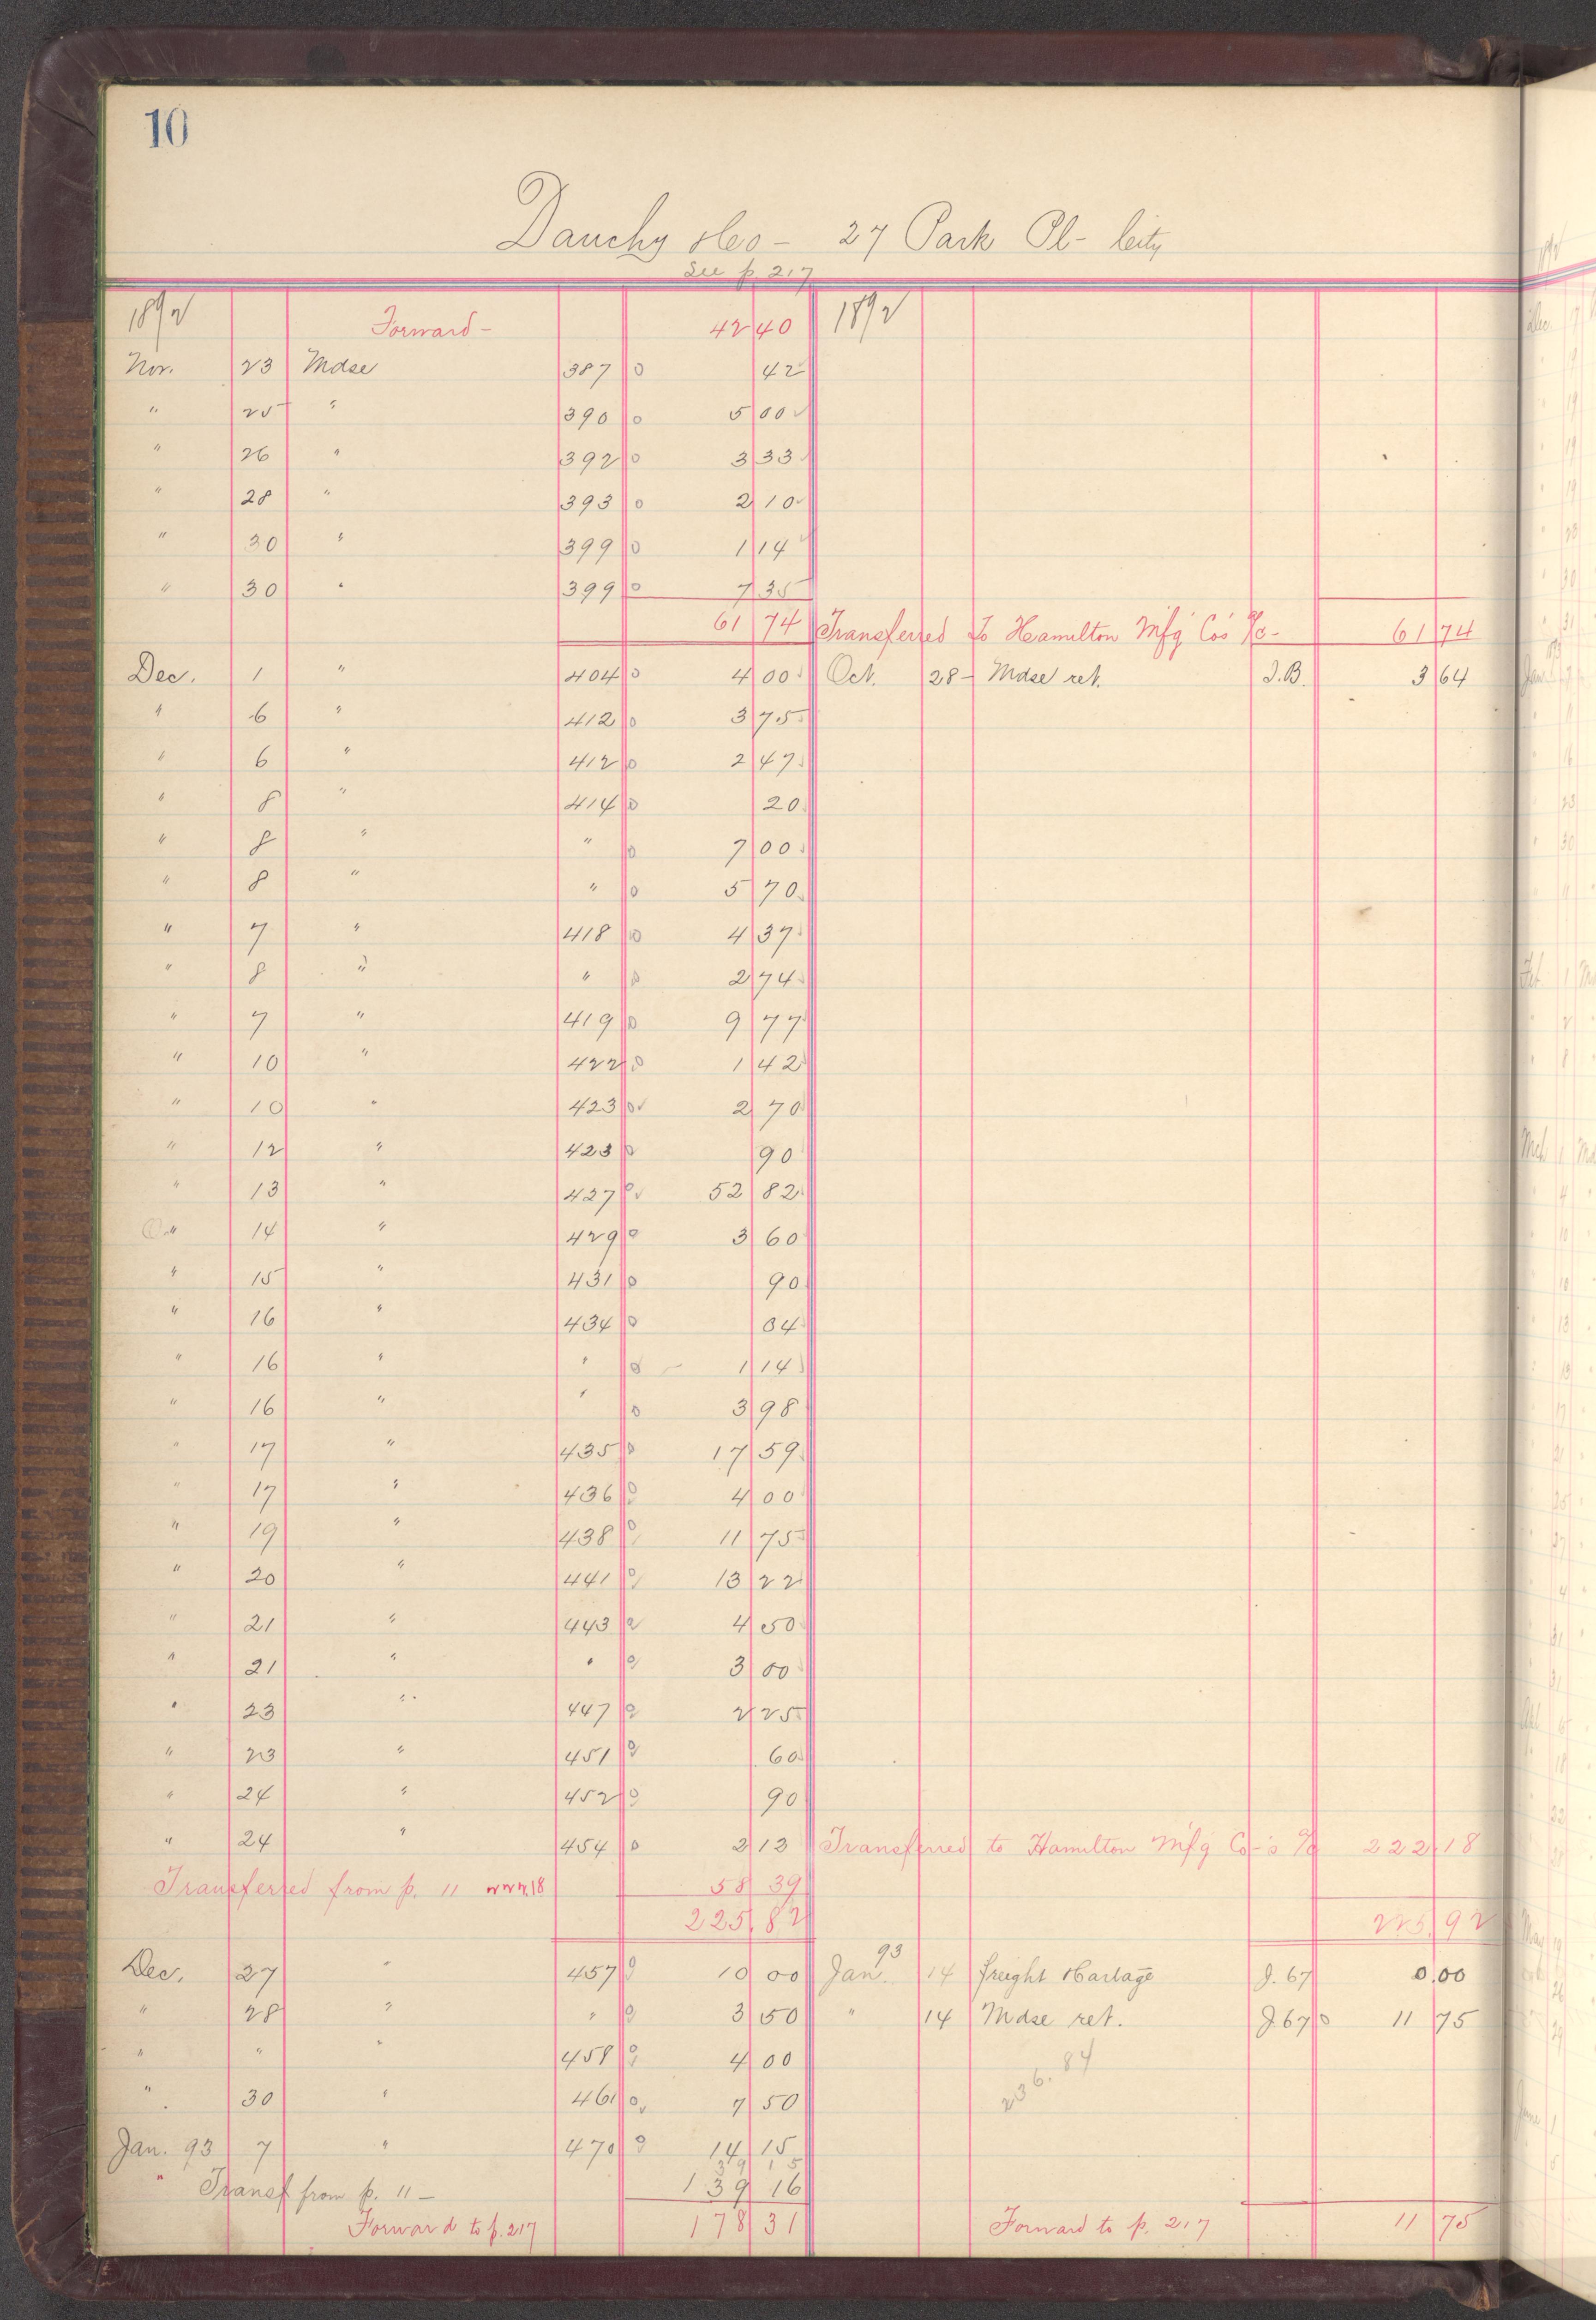 10
Dauchy & Co - 27 Park Pl - City
See p. 217
1892 Forward - 42 40 1892
Nov. 23 Mdse 387 0 42
" 25 " 390 0 5 00
" 26 " 392 0 3 33
" 28 " 393 0 2 10
" 30 " 399 0 1 14
" 30 " 399 0 7 35
61 74 Transferred To Hamilton Mfg Co's a/c - 61 74
Dec. 1 " 404 0 4 00 Oct. 28 - Mdse ret. J.B. 3 64
" 6 " 412 0 3 75
" 6 " 412 0 2 47
" 8 " 414 0 20
" 8 " " 0 7 00
" 8 " " 0 5 70
" 7 " 418 0 4 37
" 8 " " 0 2 74
" 7 " 419 0 9 77
" 10 " 422 0 1 42
" 10 " 423 0 2 70
" 12 " 423 0 90
" 13 " 427 0 52 82
" 14 " 429 0 3 60
" 15 " 431 0 90
" 16 " 434 0 84
" 16 " " 0 1 14
" 16 " " 0 3 98
" 17 " 435 0 17 59
" 17 " 436 0 4 00
" 19 " 438 0 11 75
" 20 " 441 0 13 22
" 21 " 443 0 4 50
" 21 " " 0 3 00
" 23 " 447 0 2 25
" 23 " 451 0 60
" 24 " 452 0 90
" 24 " 454 0 2 12 Transferred to Hamilton Mfg Co-'s a/c 222 18
Transferred from p. 11 222.18 58 39
225 82 225 92
Dec. 27 " 457 0 10 00 Jan. 93 14 freight & Cartage J. 67 0.00
" 28 " " 0 3 50 " 14 Mdse ret. J 67 0 11 75
" " " 458 0 4 00
236.84
" 30 " 461 0 7 50
Jan. 93 7 " 470 0 14 15
39 15
" Transf from p. 11 - 139 16
Forward to p. 217 178 31 Forward to p. 217 11 75